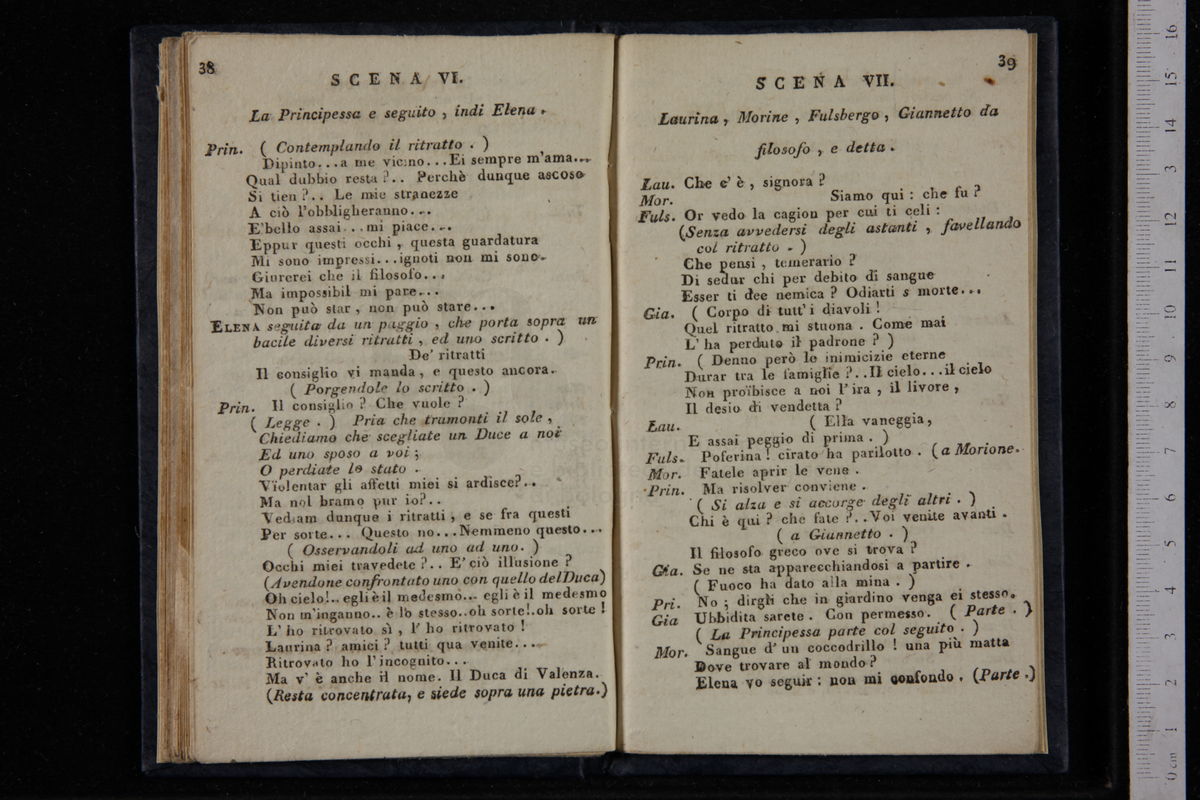 38
SCENA VI.
La Principessa e seguito , indi Elena .
Prin. ( Contemplando il ritratto . )
Dipinto...a me vicino...Ei sempre m'ama...
Qual dubbio resta ?.. Perchè dunque ascoso
Si tien ?.. Le mie stranezze
A ciò l'obbligheranno...
E'bello assai...mi piace...
Eppur questi occhi , questa guardatura
Mi sono impressi...ignoti non mi sono.
Giurerei che il filosofo...
Ma impossibil mi pare...
Non può star , non può stare...
ELENA seguita da un paggio , che porta sopra un
bacile diversi ritratti , ed uno scritto . )
De' ritratti
Il consiglio vi manda , e questo ancora.
( Porgendole lo scritto . )
Prin. Il consiglio ? Che vuole ?
( Legge . ) Pria che tramonti il sole ,
Chiediamo che scegliate un Duce a noi
Ed uno sposo a voi ;
O perdiate lo stato .
Violentar gli affetti miei si ardisce?..
Ma nol bramo pur io?..
Vediam dunque i ritratti , e se fra questi
Per sorte... Questo no...Nemmeno questo...
( Osservandoli ad uno ad uno. )
Occhi miei travedete ?.. E' ciò illusione ?
(Avendone confrontato uno con quello del Duca)
Oh cielo!.. egli è il medesmo... egli è il medesmo
Non m'inganno.. è lo stesso..oh sorte!.oh sorte !
L' ho ritrovato sì , l' ho ritrovato !
Laurina ? amici ? tutti qua venite...
Ritrovato ho l'incognito...
Ma v' è anche il nome. Il Duca di Valenza.
(Resta concentrata, e siede sopra una pietra.)
39
SCENA VII.
Laurina , Morine , Fulsbergo , Giannetto da
filosofo , e detta .
Lau. Che c' è , signora ?
Mor. Siamo qui : che fu ?
Fuls. Or vedo la cagion per cui ti celi :
(Senza avvedersi degli astanti , favellando
col ritratto . )
Che pensi , temerario ?
Di sedur chi per debito di sangue
Esser ti dee nemica ? Odiarti s morte...
Gia. ( Corpo di tutt' i diavoli !
Quel ritratto mi stuona . Come mai
L' ha perduto il padrone ? )
Prin. ( Denno però le inimicizie eterne
Durar tra le famiglie ?..Il cielo...il cielo
Non proïbisce a noi l' ira , il livore ,
Il desio di vendetta ?
Lau. ( Ella vaneggia,
E assai peggio di prima . )
Fuls. Poferina ! cirato ha parilotto . (a Morione.
Mor. Fatele aprir le vene .
Prin. Ma risolver conviene .
( Si alza e si accorge degli altri . )
Chi è qui ? che fate ?..Voi venite avanti .
( a Giannetto . )
Il filosofo greco ove si trova ?
Gia. Se ne sta apparecchiandosi a partire .
( Fuoco ha dato alla mina . )
Pri. No ; dirgli che in giardino venga ei stesso.
Gia Ubbidita sarete . Con permesso. ( Parte . )
( La Principessa parte col seguito . )
Mor. Sangue d' un coccodrillo ! una più matta
Dove trovare al mondo ?
Elena vo seguir : non mi confondo . (Parte .)